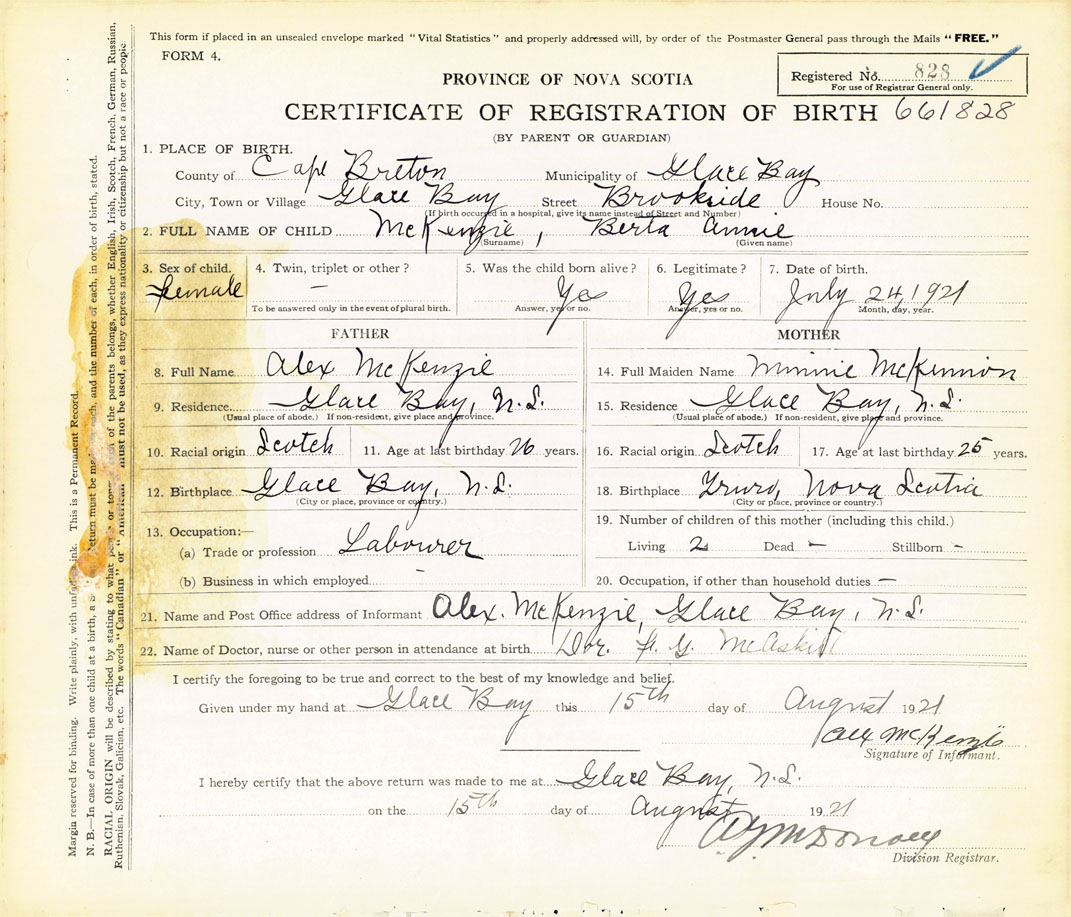 This form if placed in an unsealed envelope marked "Vital Statistics" and properly addressed will, by order of the Postmaster General pass through the Mails "FREE."
FORM 4.
PROVINCE OF NOVA SCOTIA
Registered No. 828
For use of Registrar General only.
CERTIFICATE OF REGISTRATION OF BIRTH 661828
(BY PARENT OR GUARDIAN)
1. PLACE OF BIRTH.
County of Cape Breton Municipality of Glace Bay
City, Town or Village Glace Bay Street Brookside House No.
(If birth occurred in a hospital, give its name instead of Street and Number)
2. FULL NAME OF CHILD McKenzie, Berta Annie
(Surname) (Given name)
3. Sex of child. 4. Twin, triplet or other? 5. Was the child born alive? 6. Legitimate? 7. Date of birth.
Female — Yes Yes July 24, 1921
To be answered only in the event of plural birth. Answer, yes or no. Answer, yes or no. Month, day, year.
FATHER MOTHER
8. Full Name Alex McKenzie 14. Full Maiden Name Minnie McKinnon
9. Residence Glace Bay, N.S. 15. Residence Glace Bay, N.S.
(Usual place of abode.) If non-resident, give place and province. (Usual place of abode.) If non-resident, give place and province.
10. Racial origin Scotch 11. Age at last birthday 26 years. 16. Racial origin Scotch 17. Age at last birthday 25 years.
12. Birthplace Glace Bay, N.S. 18. Birthplace Truro, Nova Scotia
(City or place, province or country.) (City or place, province or country.)
13. Occupation:— 19. Number of children of this mother (including this child.)
(a) Trade or profession Labourer Living 2 Dead — Stillborn —
(b) Business in which employed — 20. Occupation, if other than household duties —
21. Name and Post Office address of Informant Alex. McKenzie, Glace Bay, N.S.
22. Name of Doctor, nurse or other person in attendance at birth Dr. F. G. McAskill
I certify the foregoing to be true and correct to the best of my knowledge and belief.
Given under my hand at Glace Bay this 15th day of August 1921
Alex McKenzie
Signature of Informant.
I hereby certify that the above return was made to me at Glace Bay, N.S.
on the 15th day of August 1921
Division Registrar.
Margin reserved for binding. Write plainly, with ink. This is a Permanent Record.
N. B.—In case of more than one child at a birth, a return must be each, and the number of each, in order of birth, stated.
RACIAL ORIGIN will be described by stating to what or of the parents belongs, whether English, Irish, Scotch, French, German, Russian,
Ruthenian, Slovak, Galician, etc. The words "Canadian" or "American" must not be used, as they express nationality or citizenship but not a race or people